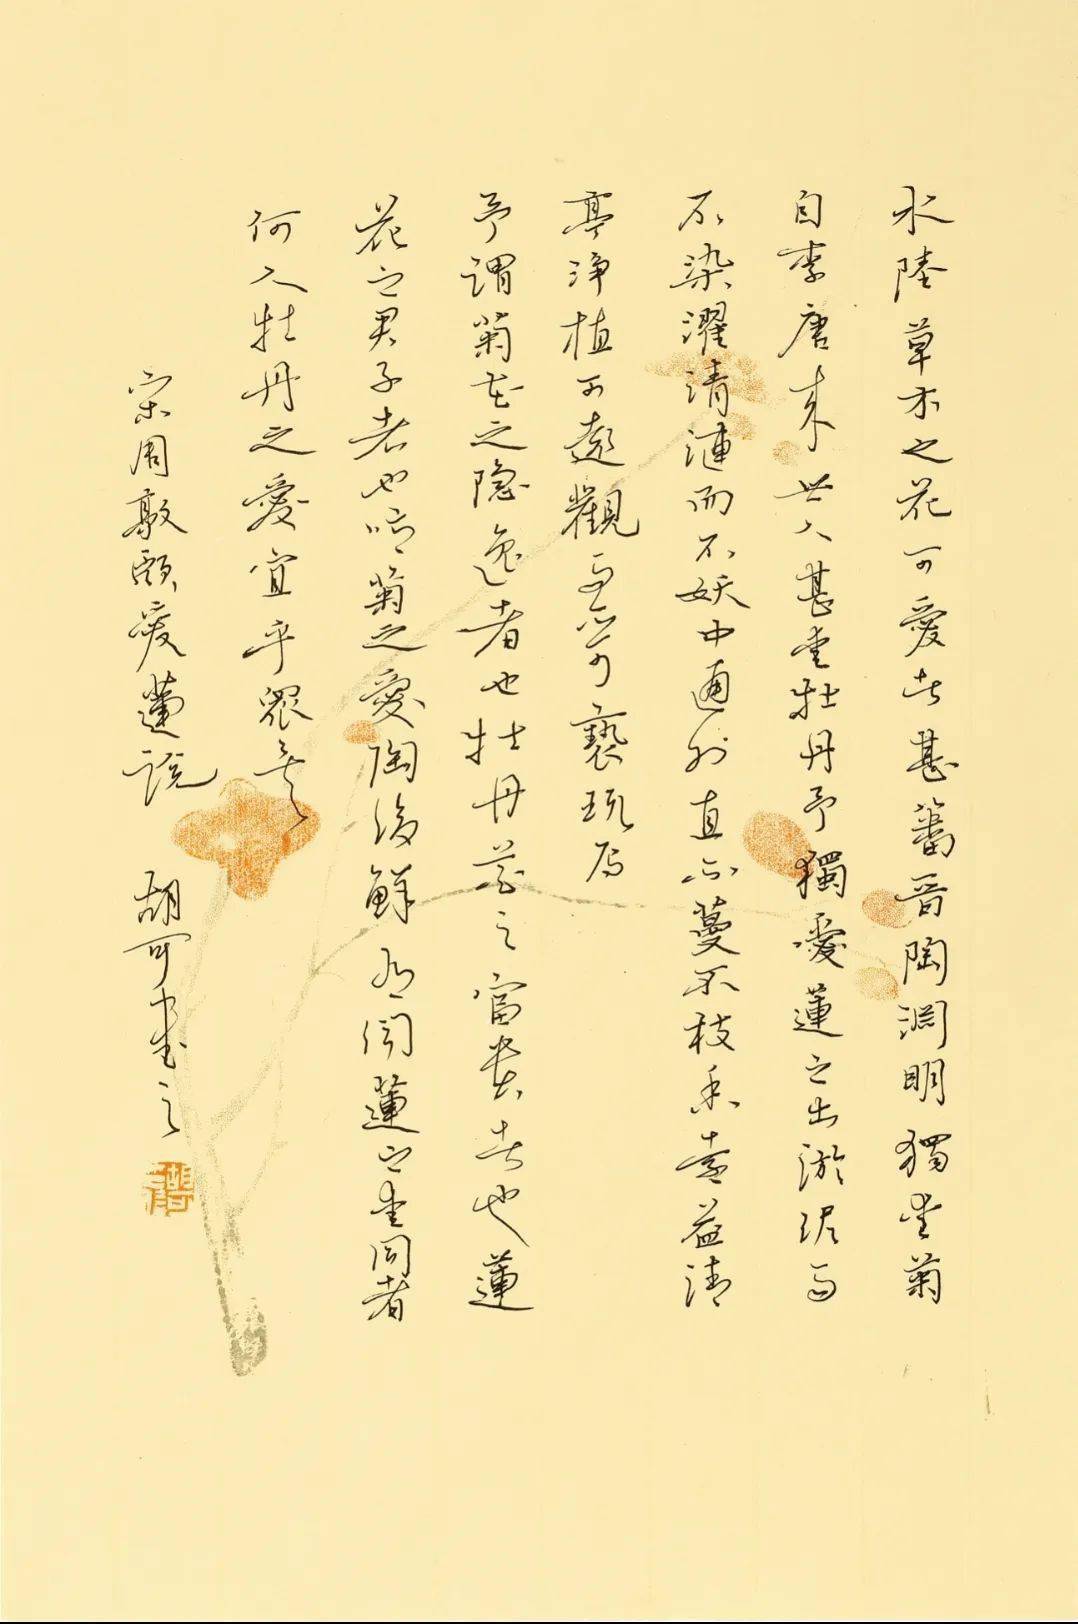 水陸草木之花可愛者甚蕃晉陶淵明獨愛菊
自李唐來世人甚愛牡丹予獨愛蓮之出淤泥而
不染濯清漣而不妖中通外直不蔓不枝香遠益清
亭淨植可遠觀而不可褻玩焉
予謂菊花之隱逸者也牡丹花之富貴者也蓮
花之君子者也噫菊之愛陶後鮮有聞蓮之愛同者
何人牡丹之愛宜乎眾矣
宋周敦頤愛蓮說 胡可書之